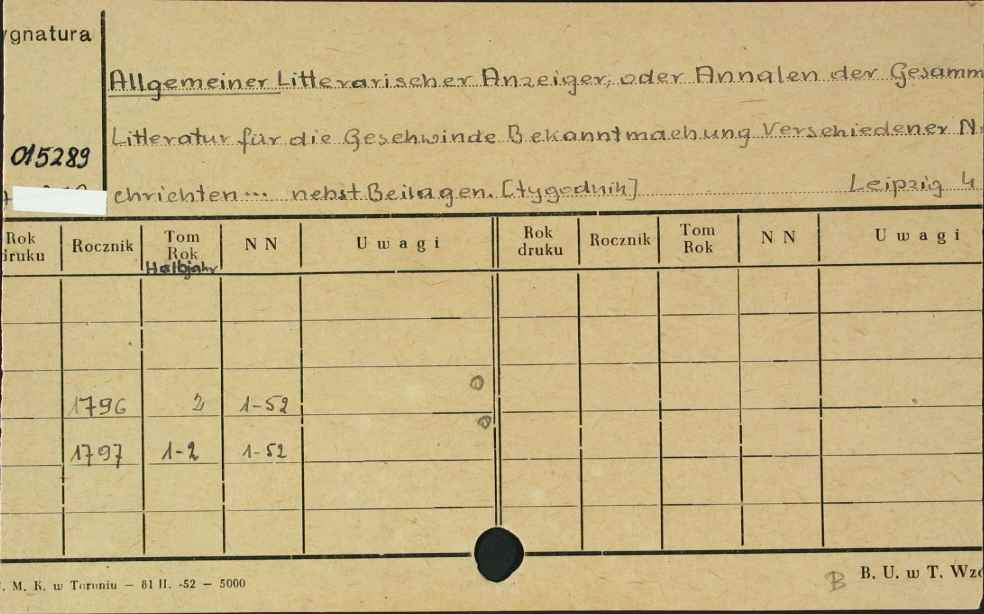 ygnatura
Allgemeiner Litterarischer Anzeiger, oder Annalen der Gesamm
Litteratur für die Geschwinde Bekanntmachung Verschiedener N
015289
chrichten... nebst Beilagen. [tygodnik] Leipzig 4
Rok druku Rocznik Tom Rok Halbjahr N N Uwagi Rok druku Rocznik Tom Rok N N Uwagi
1796 2 1-52
1797 1-2 1-52
. M. K. w Toruniu — 81 II. -52 — 5000
B B. U. w T. Wzó